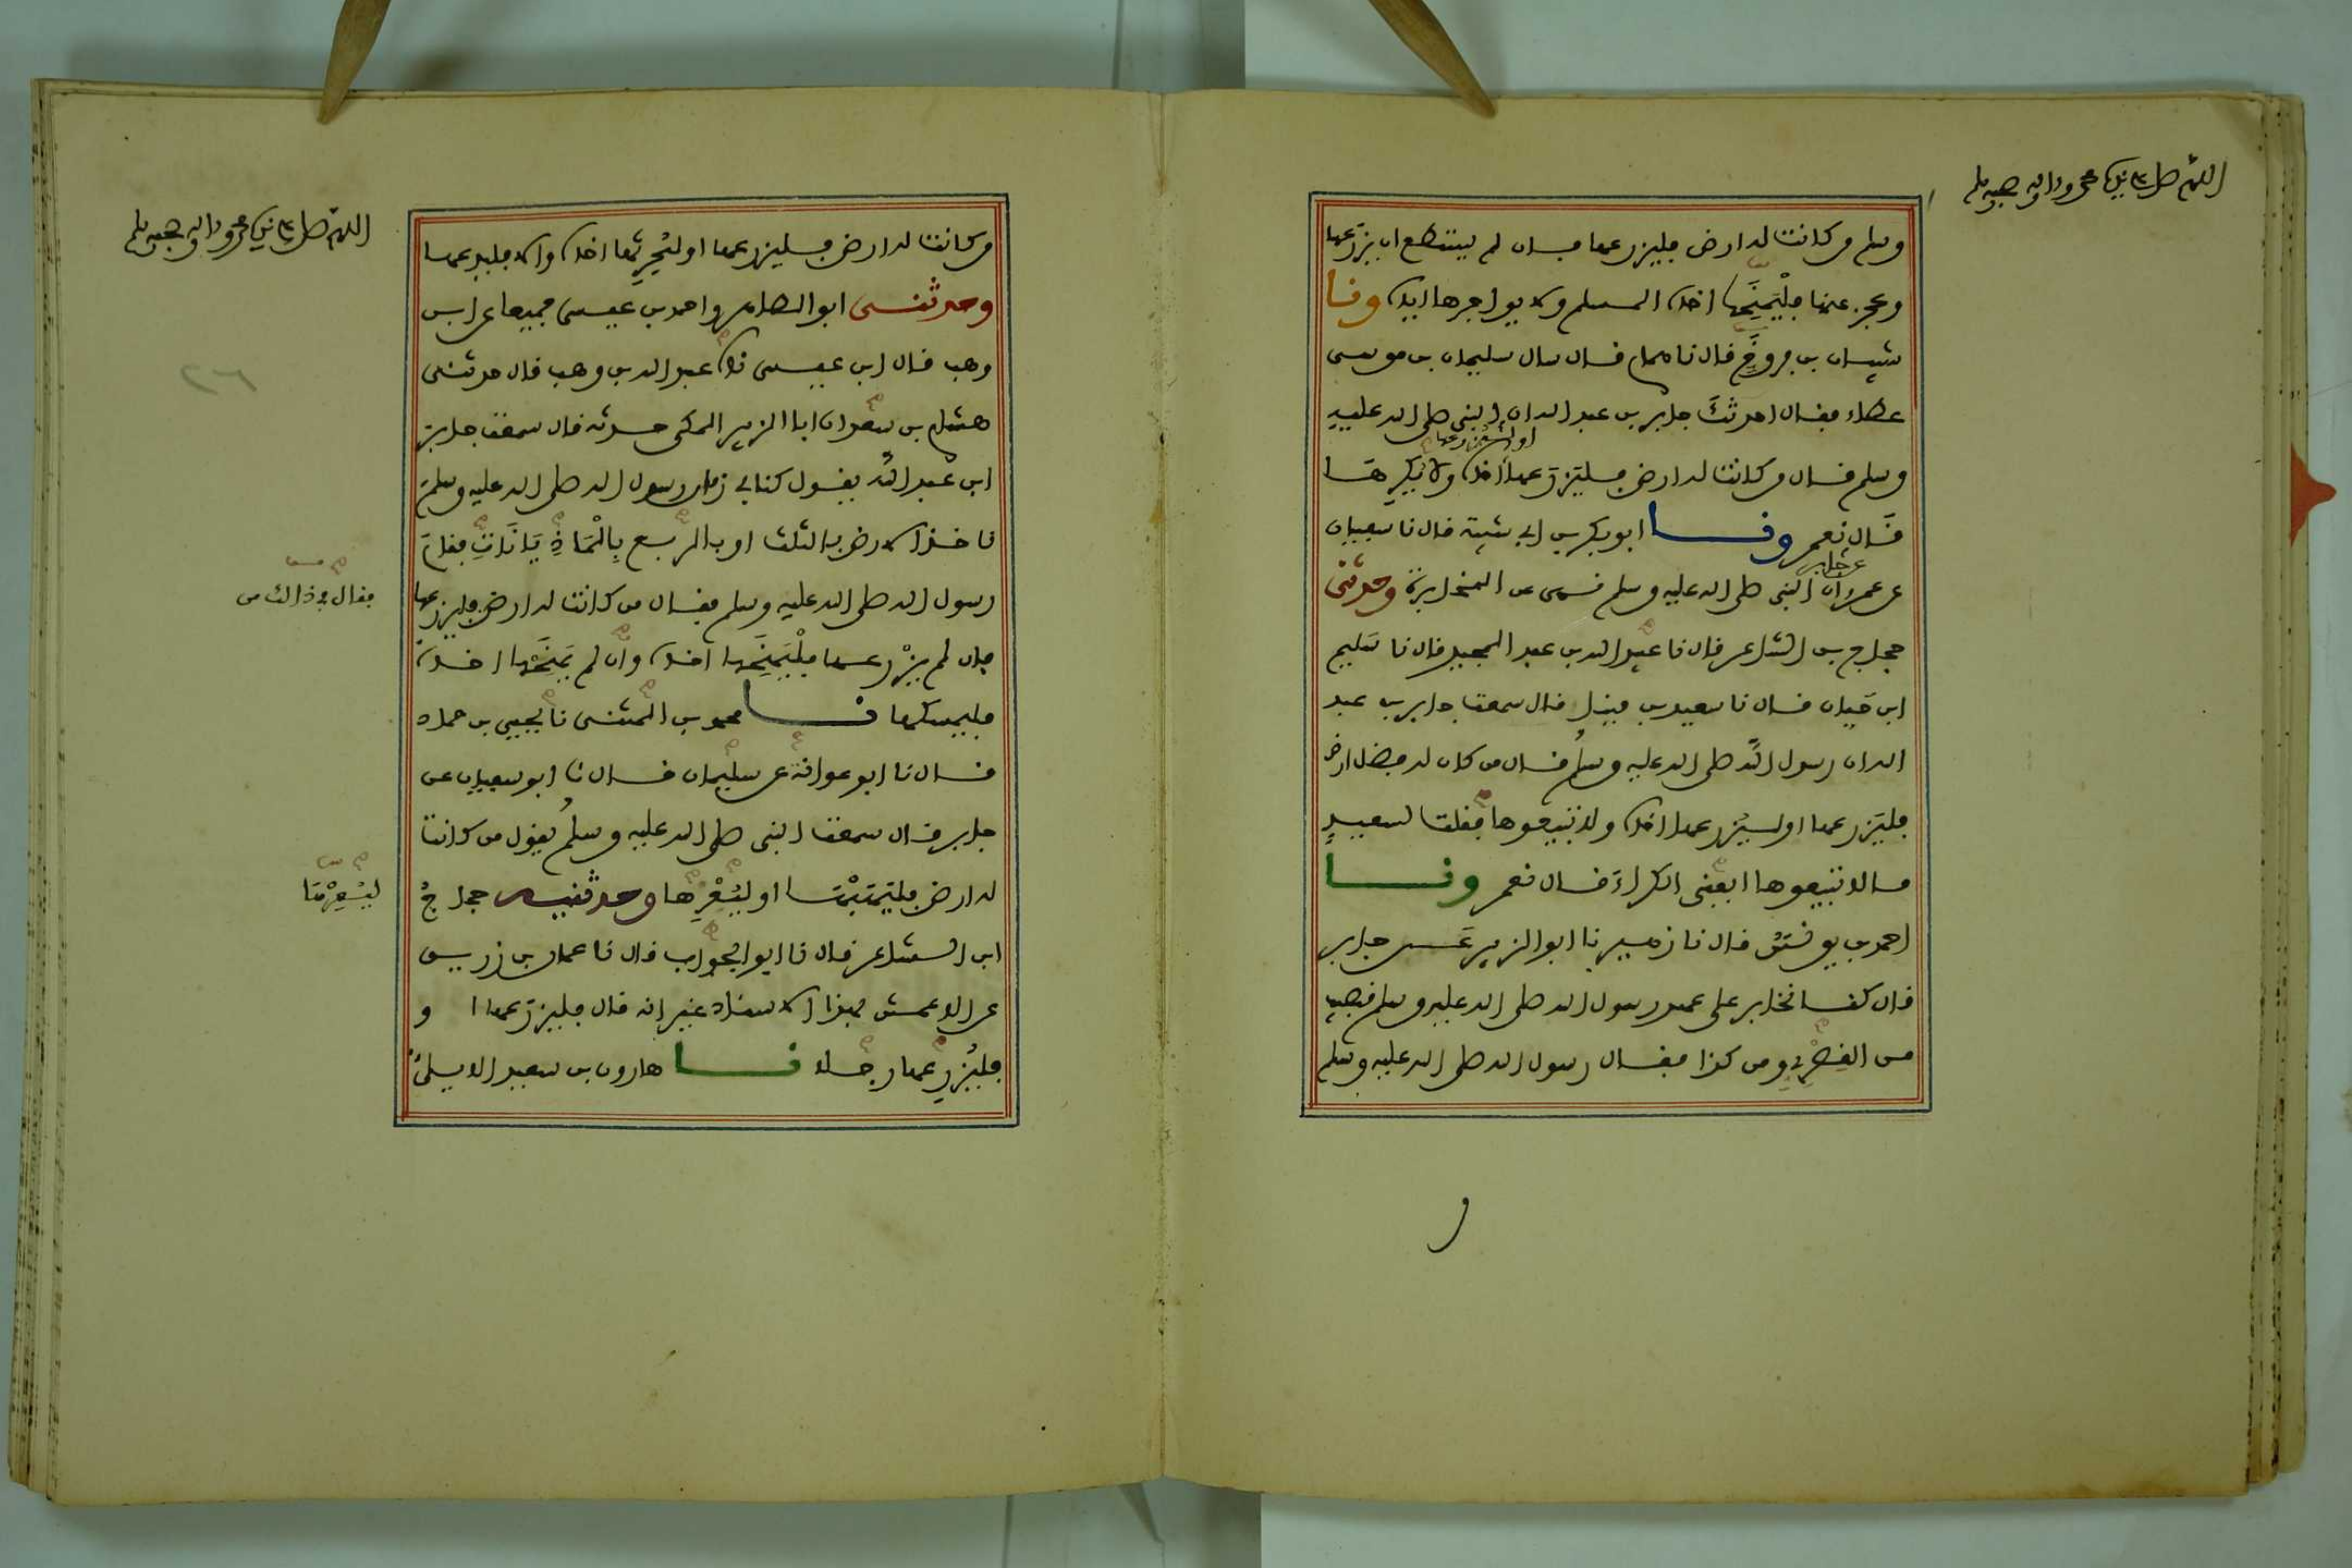 اللهم صل على نبينا محمد واله وصحبه وسلم
وسلم من كانت له ارض فليزرعها فان لم يستطع ان يزرعها
وعجز عنها فليمنحها اخاه المسلم ولا يواجرها اياه ونا
شيبان بن فروخ قال نا همام قال سال سليمان بن موسى
عطاء فقال احدثك جابر بن عبد الله ان النبي صلى الله عليه
او ليزرعها
وسلم قال من كانت له ارض فليزرعها اخاه ولا يكرها
قال نعم ونا ابو بكر بن ابي شيبة قال نا سفيان
عن جابر
عن عمرو ان النبي صلى الله عليه وسلم نهى عن المخابرة وحدثني
حجاج بن الشاعر قال نا عبيد الله بن عبد المجيد قال نا سليم
ابن حيان قال نا سعيد بن مينا قال سمعت جابر بن عبد
الله ان رسول الله صلى الله عليه وسلم قال من كان له فضل ارض
فليزرعها او ليزرعها اخاه ولا تبيعوها فقلت لسعيد
ما لا تبيعوها ايعني الكراء قال نعم ونا
احمد بن يونس قال نا زهير نا ابو الزبير عن جابر
قال كنا نخابر على عهد رسول الله صلى الله عليه وسلم فنصيب
من القصري ومن كذا فقال رسول الله صلى الله عليه وسلم
اللهم صل على نبينا محمد واله وصحبه وسلم
من كانت له ارض فليزرعها او ليحرثها اخاه والا فليدعها
وحدثني ابو الطاهر واحمد بن عيسى جميعا عن ابن
وهب قال ابن عيسى نا عبد الله بن وهب قال حدثني
هشام بن سعد ان ابا الزبير المكي حدثه قال سمعت جابر
ابن عبد الله يقول كنا في زمان رسول الله صلى الله عليه وسلم
ناخذ الارض بالثلث او بالربع بالماذيانات فقام
رسول الله صلى الله عليه وسلم فقال من كانت له ارض فليزرعها
فقال في ذلك من
فان لم يزرعها فليمنحها اخاه وان لم يمنحها اخاه
فليمسكها نا محمد بن المثنى نا يحيى بن حماد
قال نا ابو عوانة عن سليمان قال نا ابو سفيان عن
جابر قال سمعت النبي صلى الله عليه وسلم يقول من كانت
له ارض فليهبها او ليعرها وحدثنيه حجاج
ابن الشاعر قال نا ابو الجواب قال نا عمار بن زريق
عن الاعمش بهذا الاسناد غير انه قال فليزرعها او
فليزرعها رجلا نا هارون بن سعيد الايلي